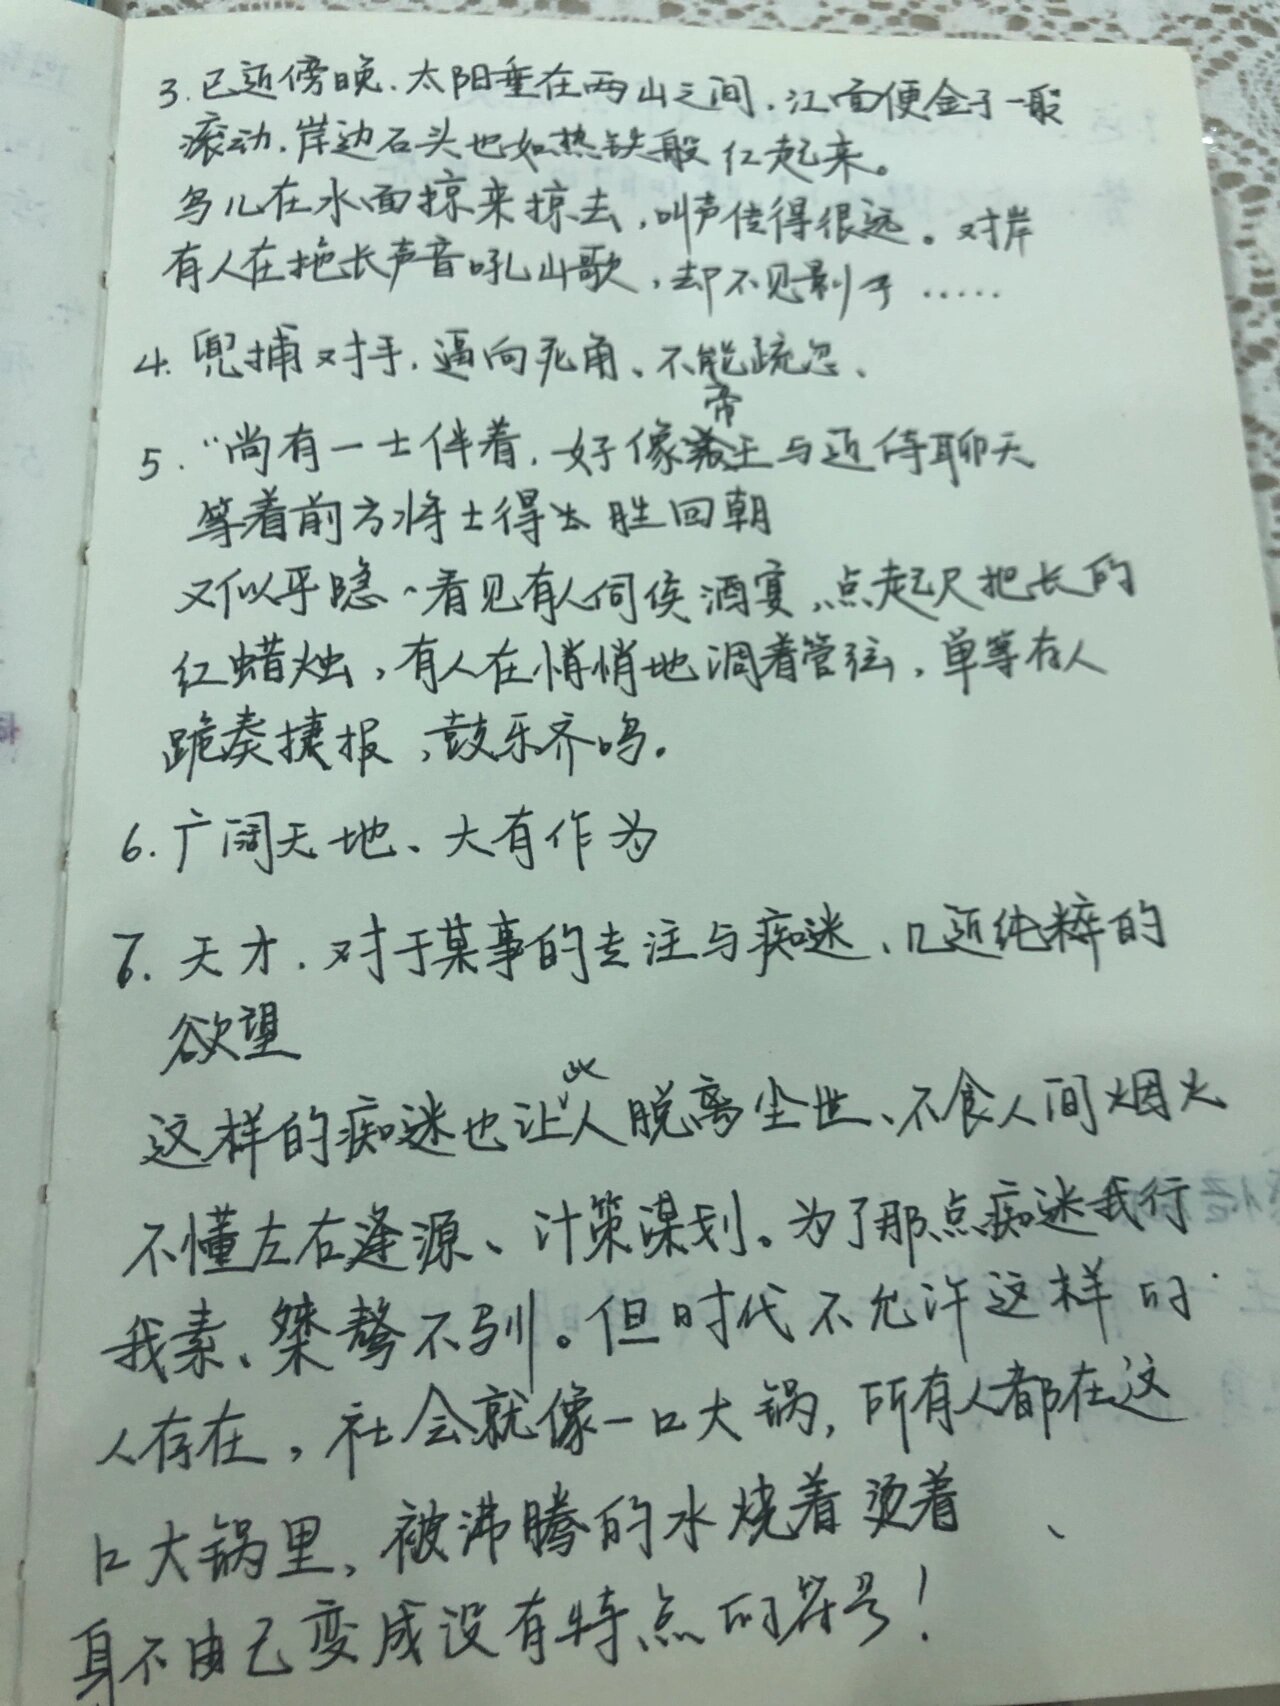 3. 已近傍晚. 太阳垂在两山之间. 江面便金子一般
滚动. 岸边石头也如热铁般 红起来。
鸟儿在水面掠来掠去, 叫声传得很远。对岸
有人在拖长声音吼山歌, 却不见影子 ……
4. 兜捕对手. 逼向死角、不能疏忽、
5. “尚有一士伴着. 好像帝王与近侍聊天
等着前方将士得出胜回朝
又似乎隐、看见有人伺侯酒宴、点起尺把长的
红蜡烛, 有人在悄悄地调着管弦, 单等有人
跪奏捷报, 鼓乐齐鸣。
6. 广阔天地、大有作为
7. 天才. 对于某事的专注与痴迷、几近纯粹的
欲望
这样的痴迷也让此人脱离尘世、不食人间烟火
不懂左右逢源、计策谋划。为了那点痴迷我行
我素、桀骜不驯。但时代不允许这样的
人存在, 社会就像一口大锅, 所有人都在这
口大锅里, 被沸腾的水烧着烫着、
身不由己变成没有特点的符号!